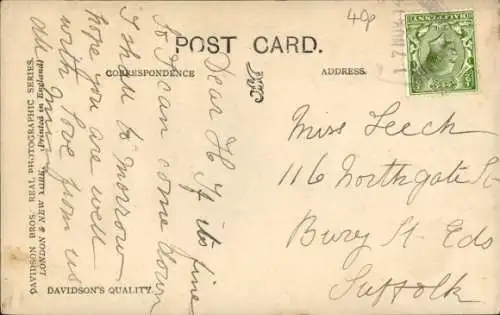 40p
POST CARD.
CORRESPONDENCE
ADDRESS.
HALFPENNY
Dear H If its fine
So I can come down
I shall to morrow
hope you are well
with love from us
all
Miss Leech
116 Northgate St
Bury St. Eds
Suffolk
DAVIDSON BROS. REAL PHOTOGRAPHIC SERIES.
LONDON & NEW YORK. (Printed in England)
DAVIDSON'S QUALITY